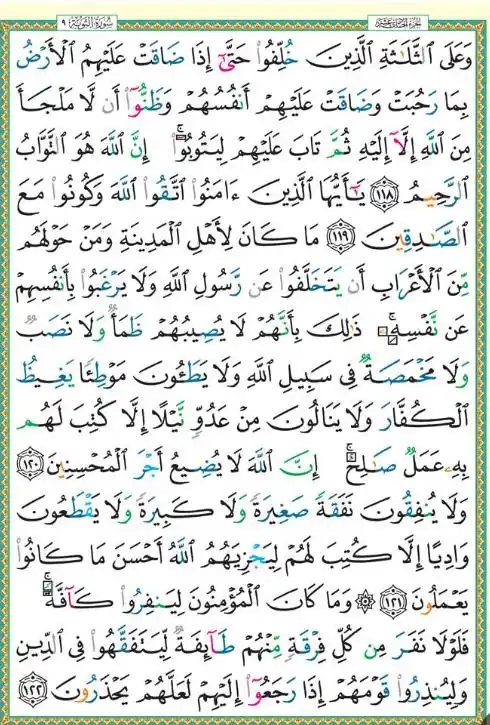 الجزء الحادي عشر سورة التوبة ٩
وَعَلَى ٱلثَّلَٰثَةِ ٱلَّذِينَ خُلِّفُوا۟ حَتَّىٰٓ إِذَا ضَاقَتْ عَلَيْهِمُ ٱلْأَرْضُ
بِمَا رَحُبَتْ وَضَاقَتْ عَلَيْهِمْ أَنفُسُهُمْ وَظَنُّوٓا۟ أَن لَّا مَلْجَأَ
مِنَ ٱللَّهِ إِلَّآ إِلَيْهِ ثُمَّ تَابَ عَلَيْهِمْ لِيَتُوبُوٓا۟ ۚ إِنَّ ٱللَّهَ هُوَ ٱلتَّوَّابُ
ٱلرَّحِيمُ ١١٨ يَٰٓأَيُّهَا ٱلَّذِينَ ءَامَنُوا۟ ٱتَّقُوا۟ ٱللَّهَ وَكُونُوا۟ مَعَ
ٱلصَّٰدِقِينَ ١١٩ مَا كَانَ لِأَهْلِ ٱلْمَدِينَةِ وَمَنْ حَوْلَهُم
مِّنَ ٱلْأَعْرَابِ أَن يَتَخَلَّفُوا۟ عَن رَّسُولِ ٱللَّهِ وَلَا يَرْغَبُوا۟ بِأَنفُسِهِمْ
عَن نَّفْسِهِۦ ۚ ذَٰلِكَ بِأَنَّهُمْ لَا يُصِيبُهُمْ ظَمَأٌ وَلَا نَصَبٌ
وَلَا مَخْمَصَةٌ فِى سَبِيلِ ٱللَّهِ وَلَا يَطَـُٔونَ مَوْطِئًا يَغِيظُ
ٱلْكُفَّارَ وَلَا يَنَالُونَ مِنْ عَدُوٍّ نَّيْلًا إِلَّا كُتِبَ لَهُم
بِهِۦ عَمَلٌ صَٰلِحٌ ۚ إِنَّ ٱللَّهَ لَا يُضِيعُ أَجْرَ ٱلْمُحْسِنِينَ ١٢٠
وَلَا يُنفِقُونَ نَفَقَةً صَغِيرَةً وَلَا كَبِيرَةً وَلَا يَقْطَعُونَ
وَادِيًا إِلَّا كُتِبَ لَهُمْ لِيَجْزِيَهُمُ ٱللَّهُ أَحْسَنَ مَا كَانُوا۟
يَعْمَلُونَ ١٢١ ۞ وَمَا كَانَ ٱلْمُؤْمِنُونَ لِيَنفِرُوا۟ كَآفَّةً ۚ
فَلَوْلَا نَفَرَ مِن كُلِّ فِرْقَةٍ مِّنْهُمْ طَآئِفَةٌ لِّيَتَفَقَّهُوا۟ فِى ٱلدِّينِ
وَلِيُنذِرُوا۟ قَوْمَهُمْ إِذَا رَجَعُوٓا۟ إِلَيْهِمْ لَعَلَّهُمْ يَحْذَرُونَ ١٢٢